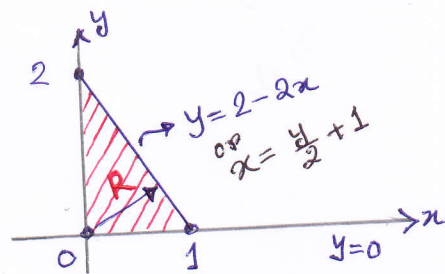 y
2
y=2-2x
or
x=y/2+1
R
0
1
y=0
x